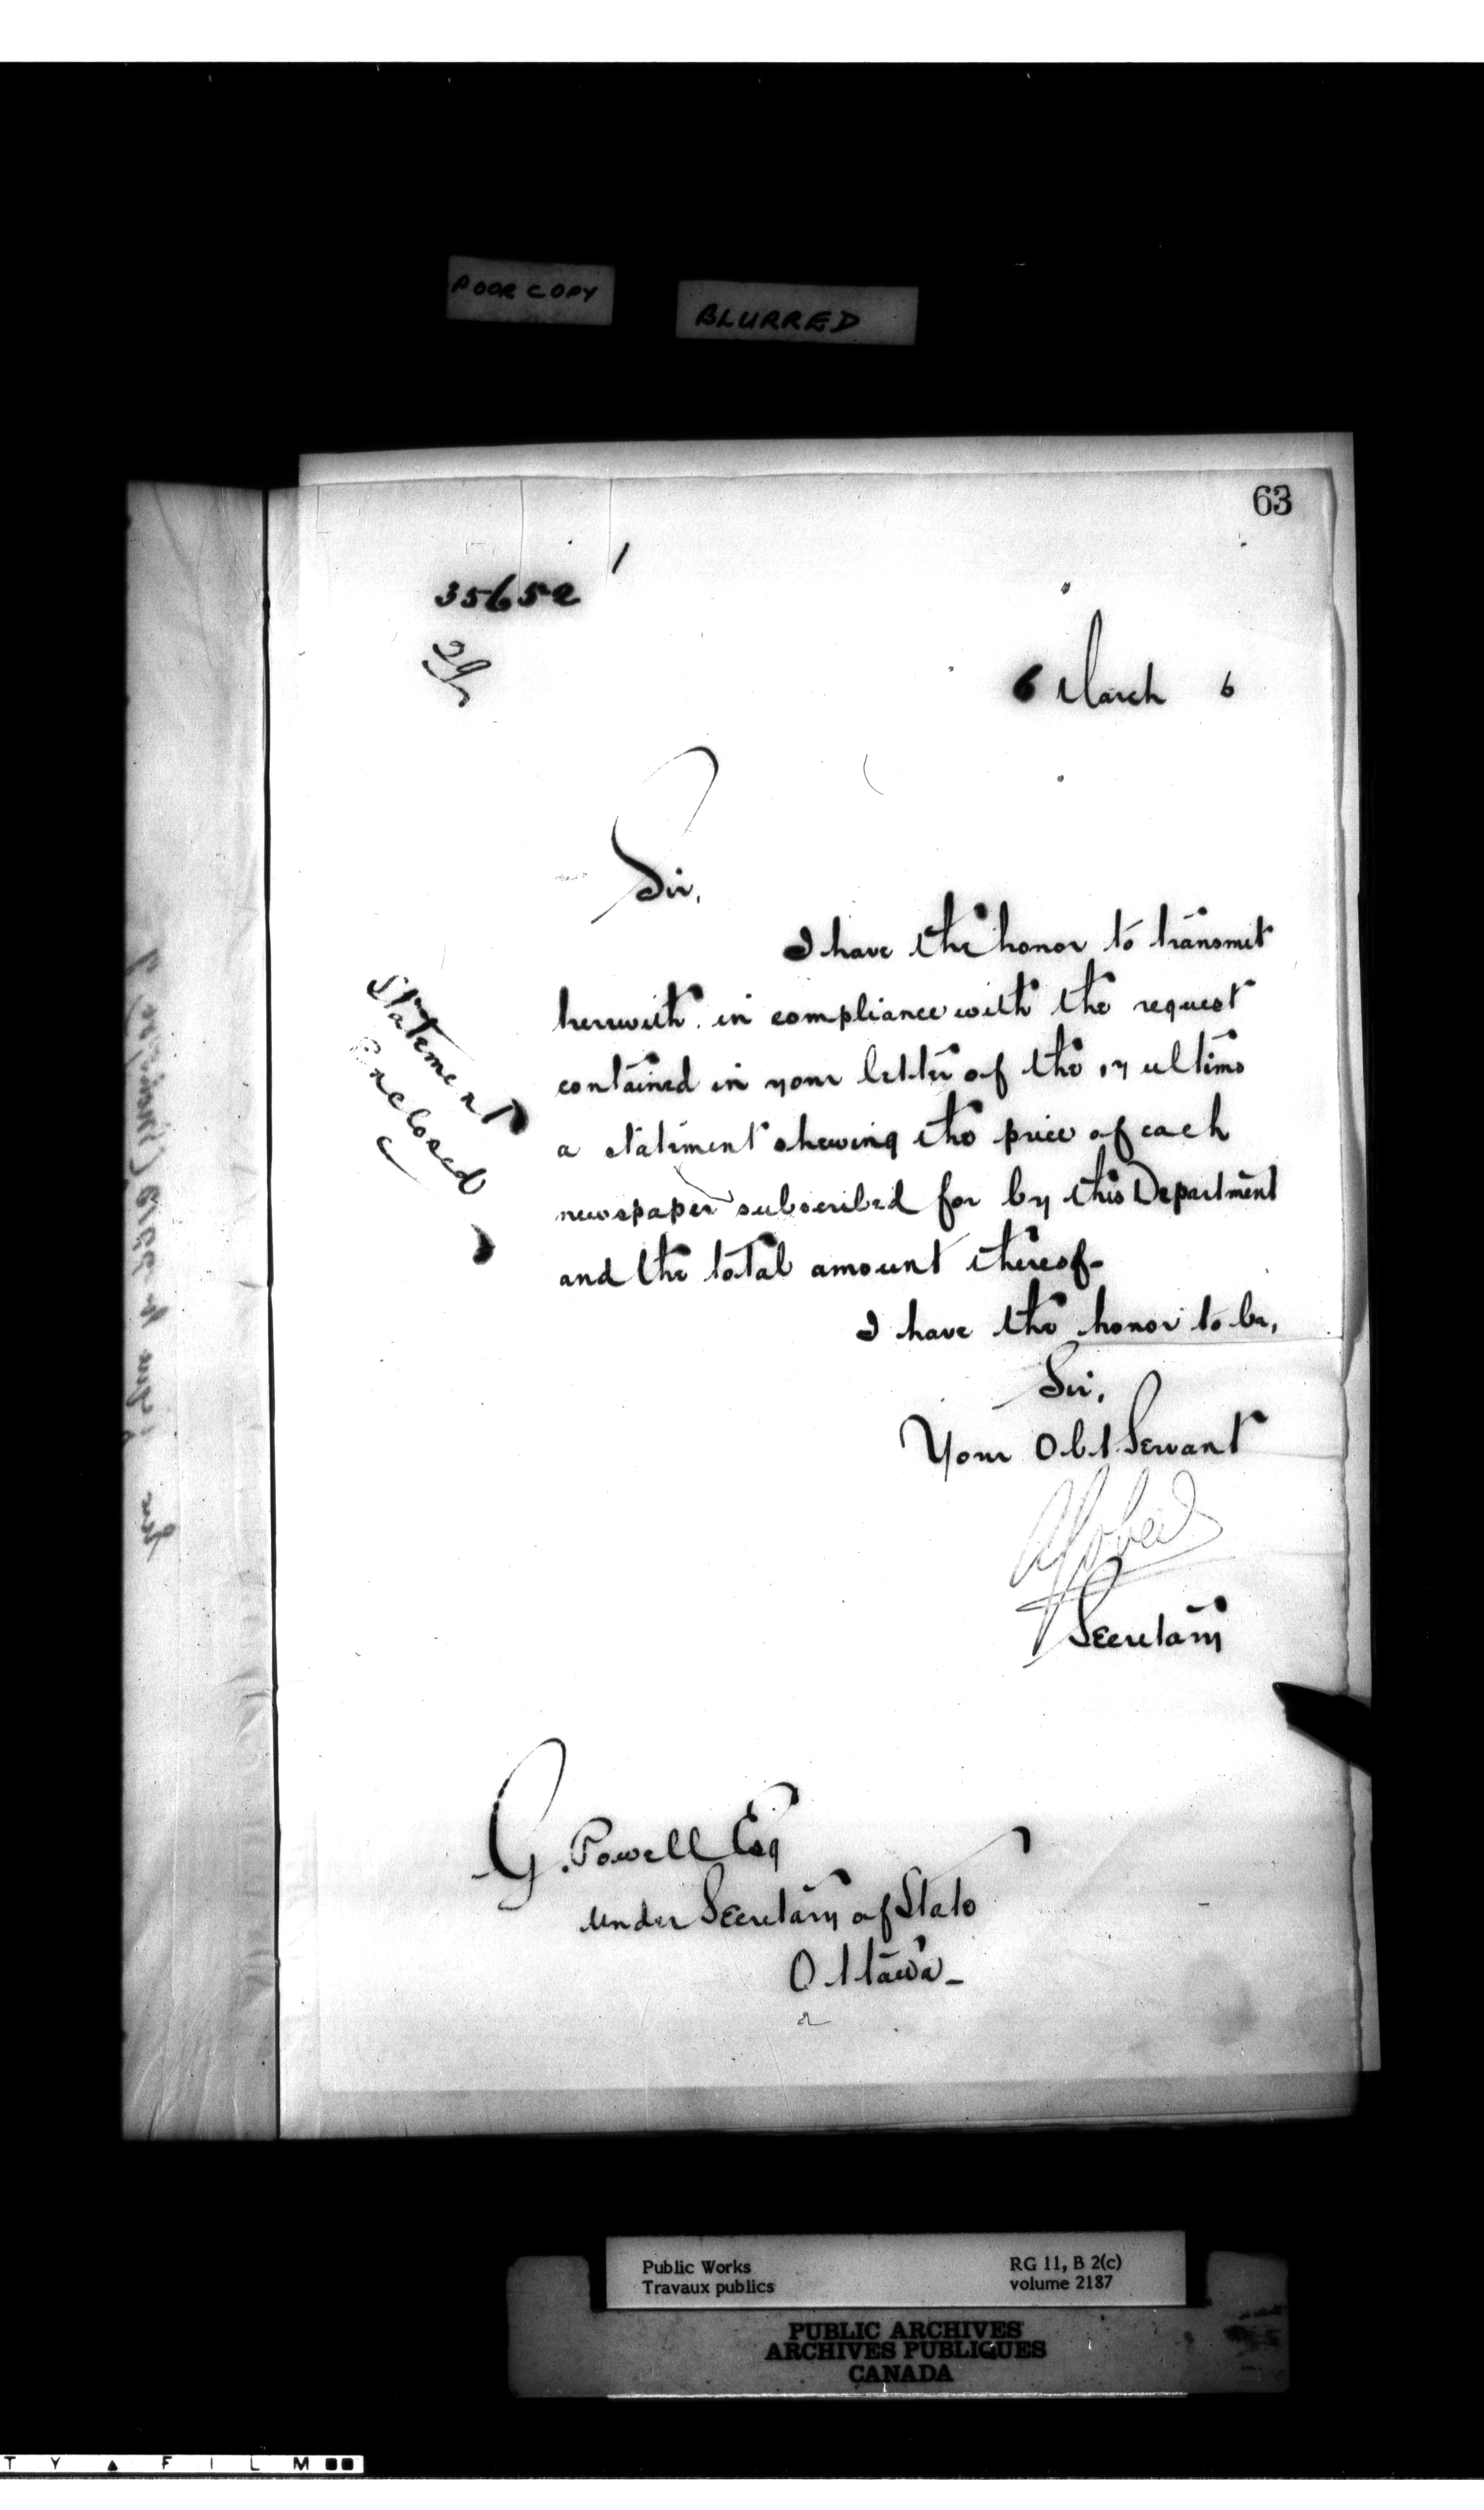 POOR COPY
BLURRED
63
35652
6 March 6
Sir,
I have the honor to transmit
herewith in compliance with the request
contained in your letter of the 17 ultimo
a statement shewing the price of each
newspaper subscribed for by this Department
and the total amount thereof-
Statement
Enclosed
I have the honor to be,
Sir,
Your Obt Servant
Secretary
G. Powell Esq
Under Secretary of State
Ottawa-
Public Works
Travaux publics
RG 11, B 2(c)
volume 2187
PUBLIC ARCHIVES
ARCHIVES PUBLIQUES
CANADA
T Y ▲ F I L M